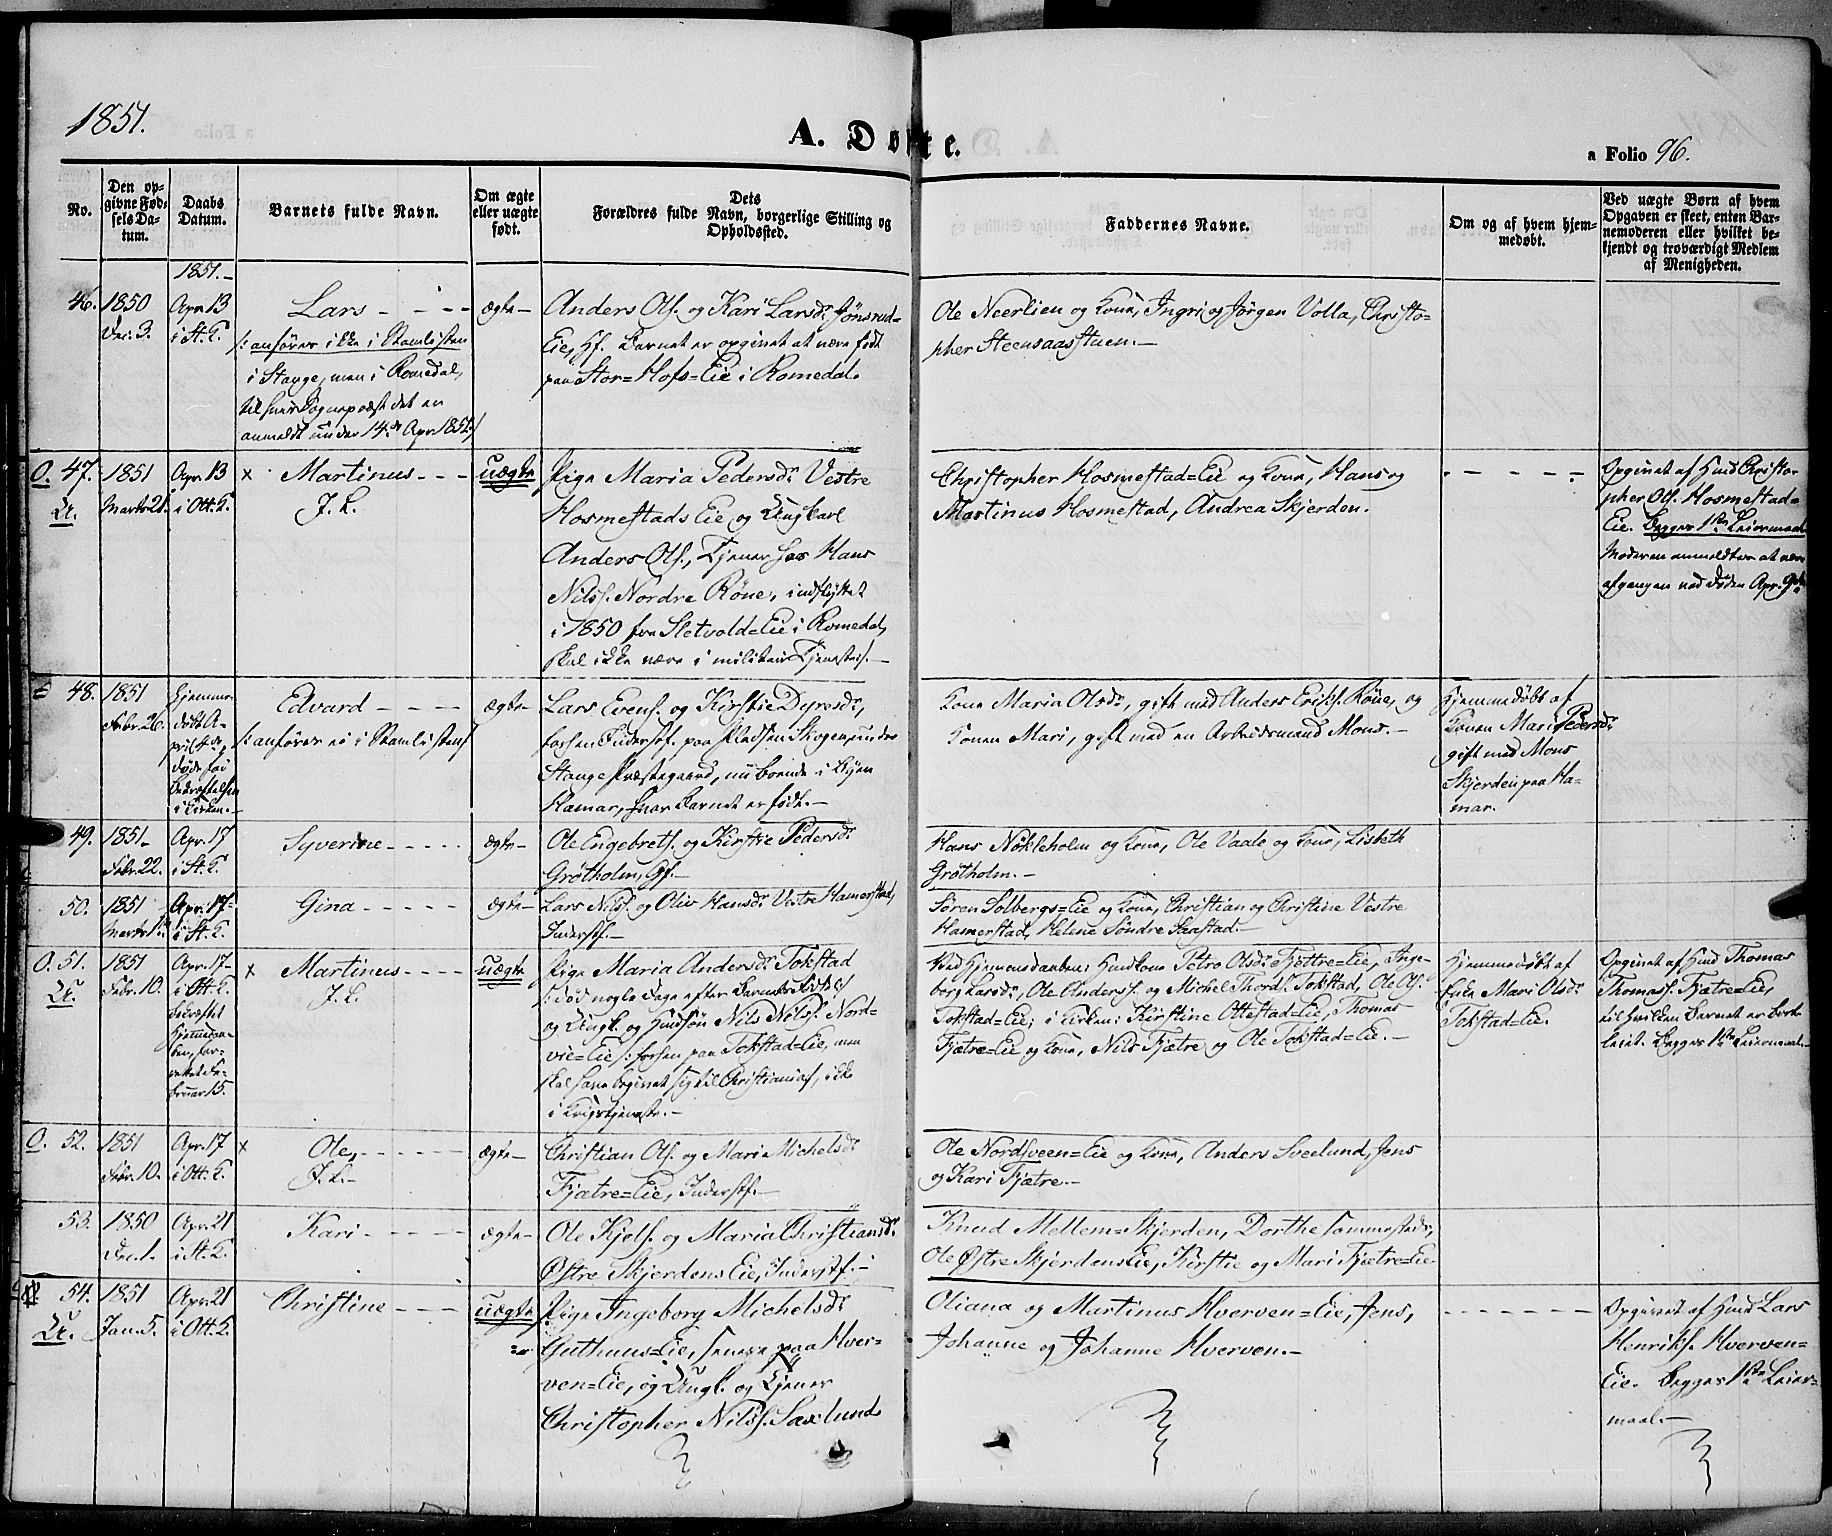 1851.
A. Døbte.
a Folio 96.
No.
Den op-
givne Fød-
sels Da-
tum.
Daabs
Datum.
Barnets fulde Navn.
Om ægte
eller uægte
født.
Dets
Forældres fulde Navn, borgerlige Stilling og
Opholdssted.
Faddernes Navne.
Om og af hvem hjem-
medøbt.
Ved uægte Børn af hvem
Opgaven er skeet, enten Bar-
nemoderen eller hvilket be-
kjendt og troværdigt Medlem
af Menigheden.
1851.-
46.
1850
Dec. 3.
Apr. 13
i St. K.
Lars - - - -
/: anføres ikke i Stamlisten
i Stange, men i Romedal,
til hvis Sognepræst det er
anmeldt under 14de Apr. 1852 /
ægte-
Anders Ols. og Kari Larsdr. Jønsrud-
Eie, Hf. Barnet er opgivet at være født
paa Stor=Hofs=Eie i Romedal.
Ole Neerlien og Kone, Ingri og Jørgen Volla, Christo-
pher Steensaasstuen.-
O. 47.
U.
1851
Marts 21.
Apr. 13
i Ott. K.
x Martinus - - -
J. L.
uægte
Pige Maria Pedersdr. Vestre
Hosmestads Eie og Ungkarl
Anders Ols., Tjener hos Hans
Nilss. Nordre Røne, indflyttet
i 1850 fra Sletvold=Eie i Romedal,
skal ikke være i militair Tjeneste.-
Christopher Hosmestad=Eie og Kone, Hans og
Martinus Hosmestad, Andrea Skjerden.
- - - - -
Opgivet af Huusmd Christo-
pher Ols. Hosmestad=
Eie. Begges 1ste Leiermaal
Moderen anmeldtes at være
afgangen ved døden Apr. 9de
48.
1851
Febr. 26.
Hjemme-
døbt A-
pril 4de
døde før
Bekræftelsen
i Kirken.-
Edvard - - - -
/: anføres ei i Stamlisten /
ægte-
Lars Evens. og Kirstie Dyresdr.,
forhen Inderstf. paa Pladsen Skogen under
Stange Præstegaard, nu boende i Byen
Hamar, hvor Barnet er født.-
Kone Maria Olsdr., gift med Anders Erikss. Røne, og
Konen Mari, gift med en Arbeidsmand Mons.-
Hjemmedøbt af
Konen Mari Pedersdr.
gift med Mons
Skjerden paa Ha-
mar.
49.
1851-
Febr. 22.
Apr. 17
i St. K.
Syverine - - - - -
ægte-
Ole Engebrets. og Kirstie Pedersdr.
Grøtholm, Gf.-
Hans Nøkleholm og Kone, Ole Vaale og Kone, Lisbeth
Grøtholm.-
50.
1851
Marts 1.
Apr. 17-
i St. K.
Gina - - - - -
ægte-
Lars Nils. og Oliv Hansdr. Vestre Hamerstad,
Inderstf.-
Søren Solbergs=Eie og Kone, Christian og Christine Vestre
Hamerstad, Helene Søndre Saastad.-
O. 51.
U.
1851
Febr. 10.
Apr. 17-
i Ott. K.
bekræftet
Hjemmedaa-
ben, for-
rettet Fe-
bruar 15.
x Martinus - - - -
J. L.
uægte
Pige Maria Andersdr. Tokstad
/: død nogle Dage efter Barnets Fødsel /
og Ungk. og Huusmdsøn Nils Nilss. Nord-
vie=Eie /: forhen paa Tokstad=Eie, men
skal have begivet sig til Christiania /, ikke
i Krigstjeneste.-
Ved Hjemmedaaben: Huusmdkone Petro Olsdr. Fjættre=Eie, Inge-
borg Larsdr., Ole Anderss. og Michel Thords. Tokstad, Ole Ols.
Tokstad=Eie; i Kirken: Kirstine Ottestad=Eie, Thomas
Fjætre=Eie og Kone, Nils Fjætre og Ole Tokstad=Eie.-
Hjemmedøbt af
Enke Mari Olsdr.
Tokstad=Eie.
Opgivet af Huusmd Thomas
Thomass. Fjætre=Eie,
til hvilken Barnet er bort-
leiet. Begges 1ste Leiermaal.-
O. 52.
1851
Febr. 10.
Apr. 17
i Ott. K.
x Ole, - - - - -
J. L.-
ægte-
Christian Ols. og Mari Michelsdr.
Fjætre=Eie, Inderstf.-
Ole Nordsveen=Eie og Kone, Anders Sveelund, Jens
og Kari Fjætre.-
53.
1850
Dec. 1.
Apr. 21
i St. K.
Kari - - - - -
ægte-
Ole Kjels. og Maria Christiansdr.
Østre Skjerdens Eie, Inderstf.-
Knud Mellem=Skjerden, Dorthe Sommerstad,
Ole Østre Skjerdens Eie, Kirstie og Mari Fjætre=Eie
54.
U.
1851
Jan. 5.
Apr. 21
i Ott. K.
Christine - - - -
uægte
Pige Ingeborg Michelsdr.
Guthuus=Eie, senere paa Hver-
ven=Eie, og Ungk. og Tjener
Christopher Nilss. Saxlund
Oliana og Martinus Hverven=Eie, Jens,
Johanne og Johanne Hverven.-
- - - - - - -
Opgivet af Huusmd Lars
Henrikss. Hverven=
Eie. Begges 1ste Leier-
maal.-